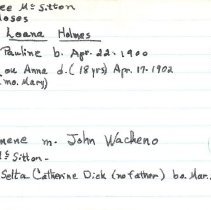 ee McSitton
Moses
Leana Holmes
Pauline b. Apr. 22. 1900
ou Anna d. (18 yrs) Apr. 17. 1902
(mo. Mary)
mene m. John Wacheno
McSitton-
Selta Catherine Dick (no father) bo. Mar.